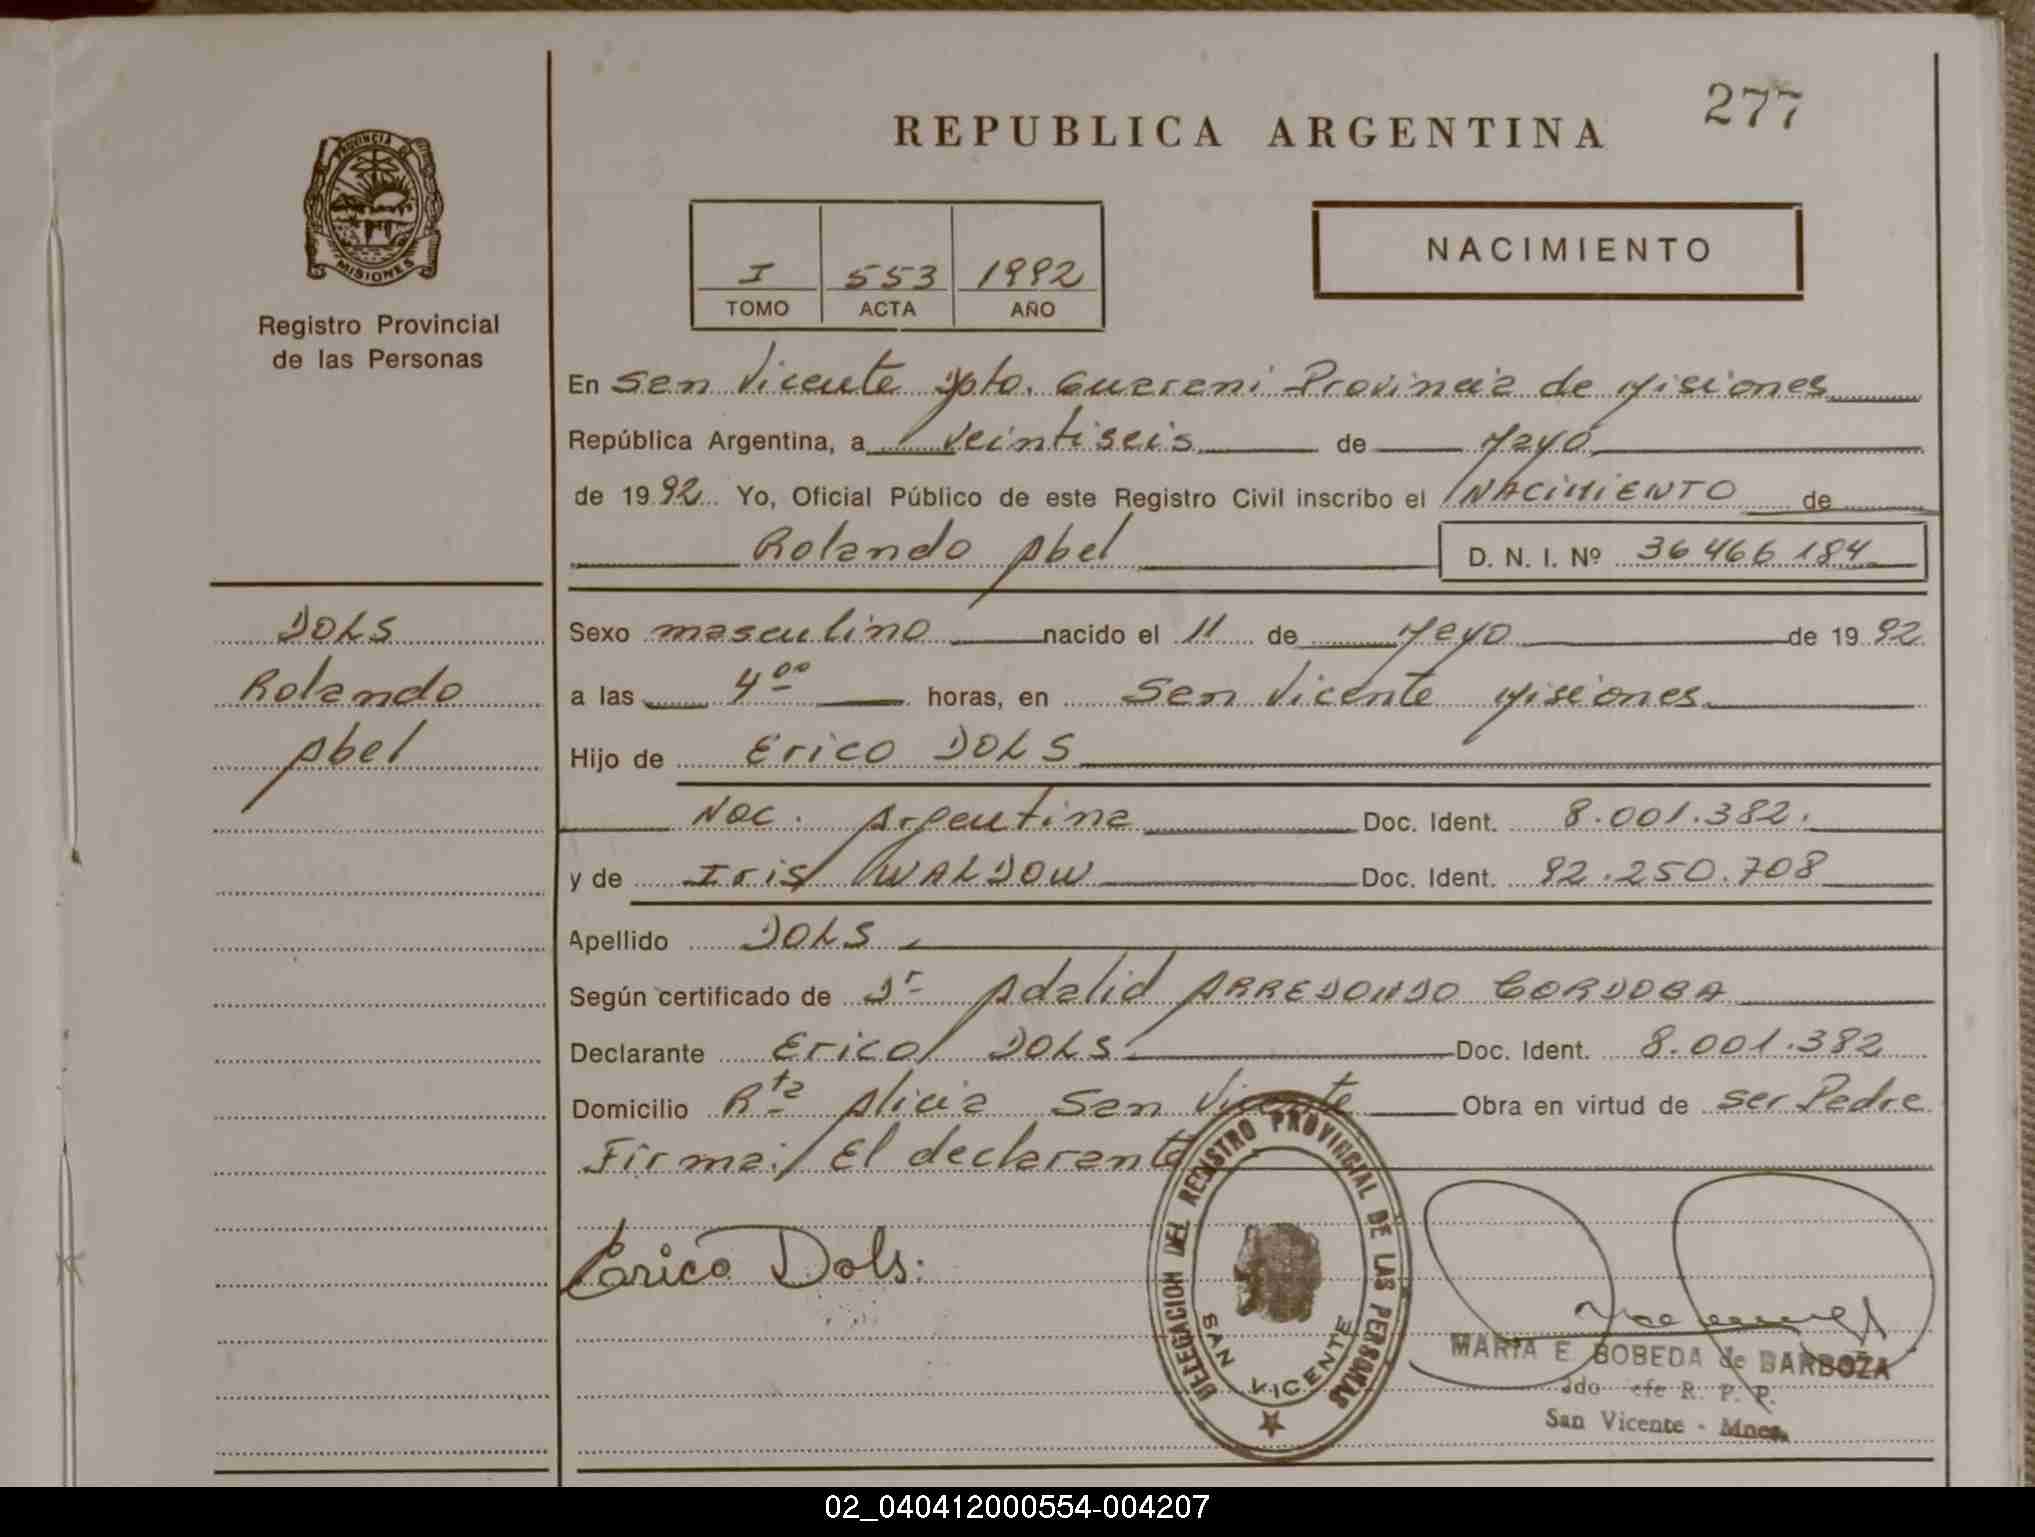 277
REPUBLICA ARGENTINA
PROVINCIA DE
MISIONES
Registro Provincial
de las Personas
NACIMIENTO
I 553 1992
TOMO ACTA AÑO
En San Vicente Dpto. Guarani Provincia de Misiones
República Argentina, a veintiseis de Mayo
de 1992 Yo, Oficial Público de este Registro Civil inscribo el NACIMIENTO de
Rolando Abel D. N. I. Nº 36466184
DOLS
Rolando
Abel
Sexo masculino nacido el 11 de Mayo de 1992
a las 4 00 horas, en San Vicente Misiones
Hijo de Erico DOLS
Nac. Argentina Doc. Ident. 8.001.382.
y de Iris WALDOW Doc. Ident. 92.250.708
Apellido DOLS
Según certificado de Dr Adalid ARREDONDO CORDOBA
Declarante Erico DOLS Doc. Ident. 8.001.382
Domicilio Rta Alicia San Vicente Obra en virtud de ser Padre
Firma: El declarante
Erico Dols.
DELEGACION DEL REGISTRO PROVINCIAL DE LAS PERSONAS
SAN VICENTE
MARIA E BOBEDA de BARBOZA
R. P. P.
San Vicente - Mnes.
02_040412000554-004207